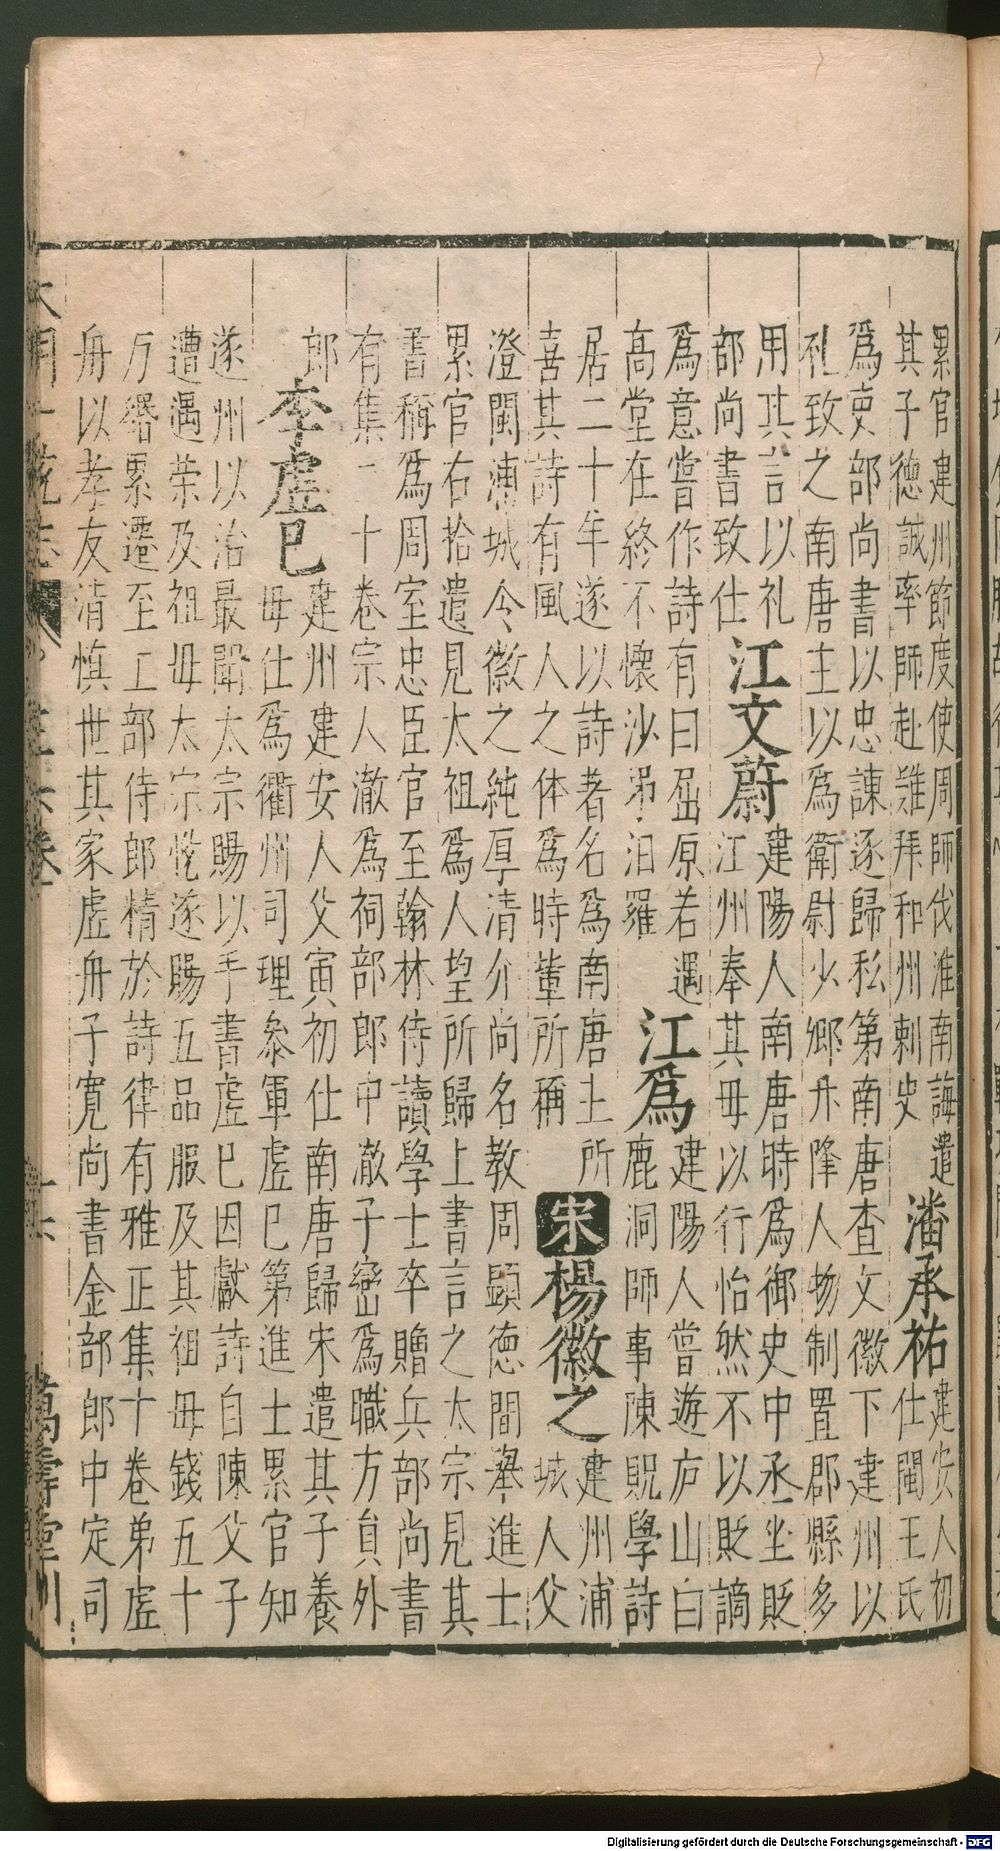 累官建州節度使周師伐淮南誨遣
其子德誠率師赴難拜和州刺史
潘承祐
建安人初
仕閩王氏
爲吏部尚書以忠諫逐歸私第南唐查文徽下建州以
礼致之南唐主以爲衛尉少卿升降人物制置郡縣多
用其言以礼
部尚書致仕
江文蔚
建陽人南唐時爲御史中丞坐貶
江州奉其母以行怡然不以貶謫
爲意嘗作詩有曰屈原若遇
高堂在終不懷沙弔汨羅
江爲
建陽人嘗遊庐山白
鹿洞師事陳貺學詩
居二十年遂以詩著名爲南唐主所
喜其詩有風人之体爲時輩所稱
宋
楊徽之
建州浦
城人父
澄閩浦城令徽之純厚清介尚名教周顯德間舉進士
累官右拾遺見太祖爲人望所歸上書言之太宗見其
書稱爲周室忠臣官至翰林侍讀學士卒贈兵部尚書
有集二十卷宗人澈爲祠部郎中澈子巒爲職方員外
郎
李虛己
建州建安人父寅初仕南唐歸宋遣其子養
母仕爲衢州司理參軍虛巳第進士累官知
遂州以治最聞太宗賜以手書虛巳因獻詩自陳父子
遭遇荣及祖母太宗悅遂賜五品服及其祖母錢五十
万緡累遷至工部侍郎精於詩律有雅正集十卷弟虛
舟以孝友清慎世其家虛舟子寬尚書金部郎中定司
萬壽堂刊
Digitalisierung gefördert durch die Deutsche Forschungsgemeinschaft - DFG